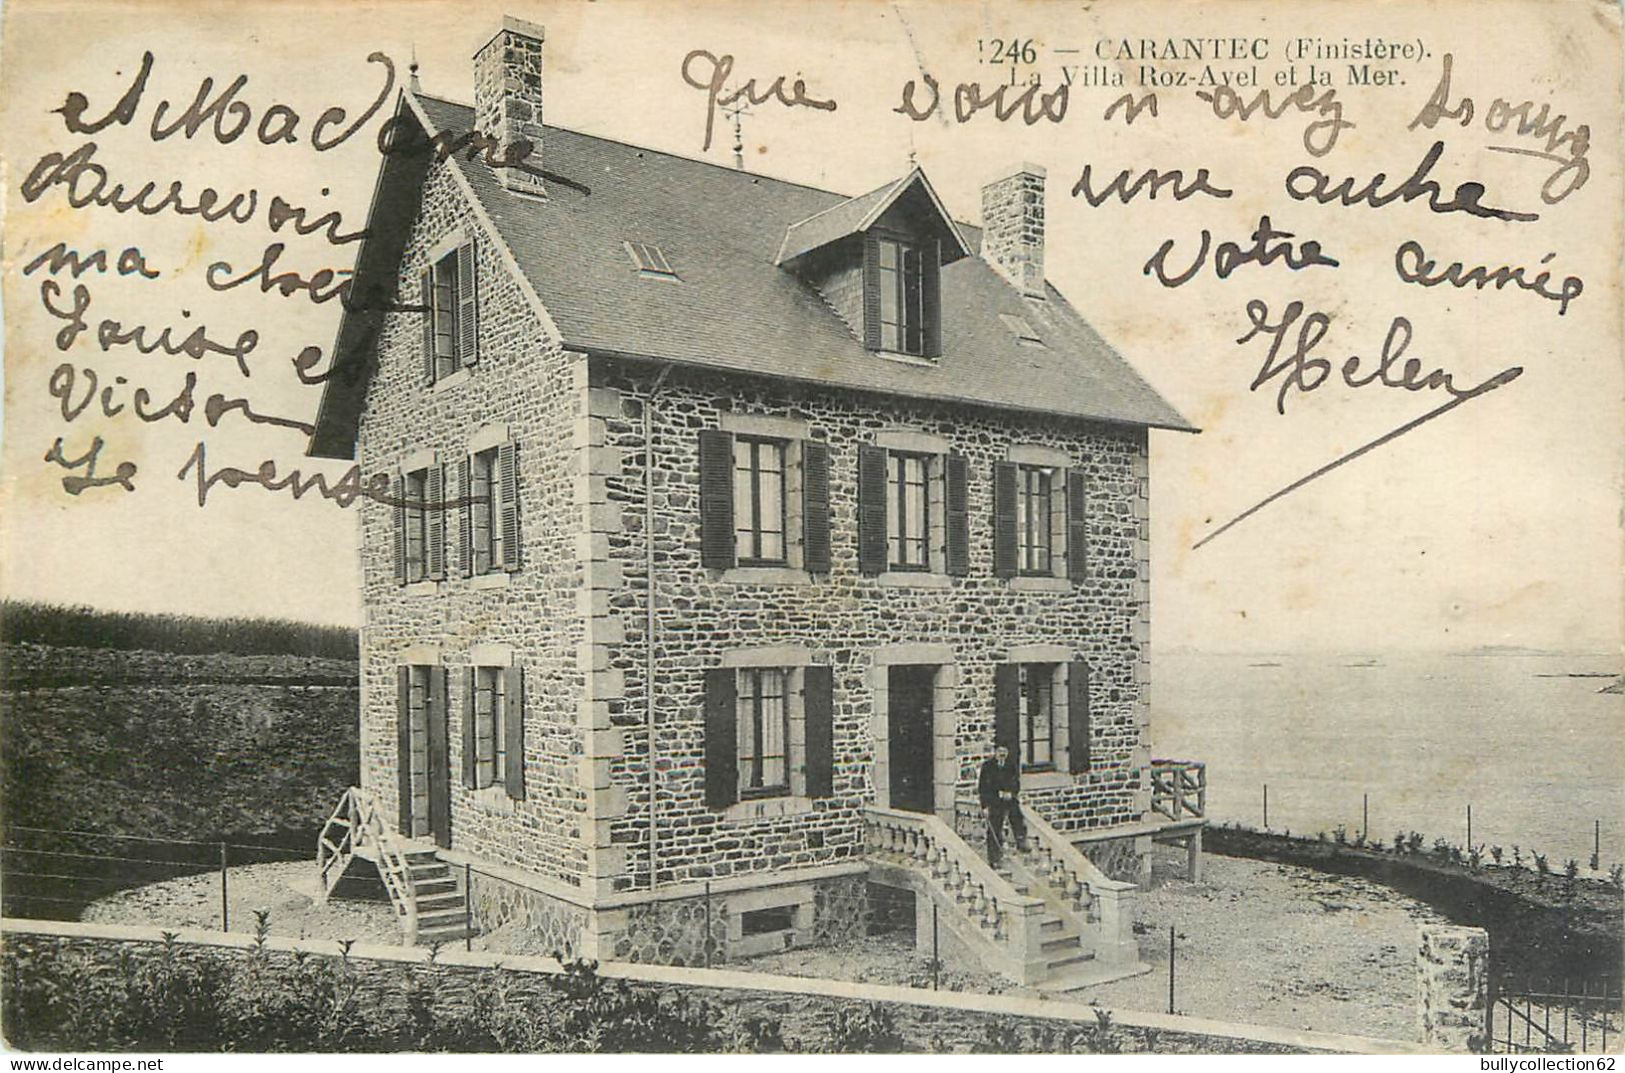 1246 — CARANTEC (Finistère).
La Villa Roz-Avel et la Mer.
et Madame
Aurevoir
ma chère
Louise et
Victor
Je pense
que vous n'avez trouvez
une autre
votre aimée
Helen
bullycollection62